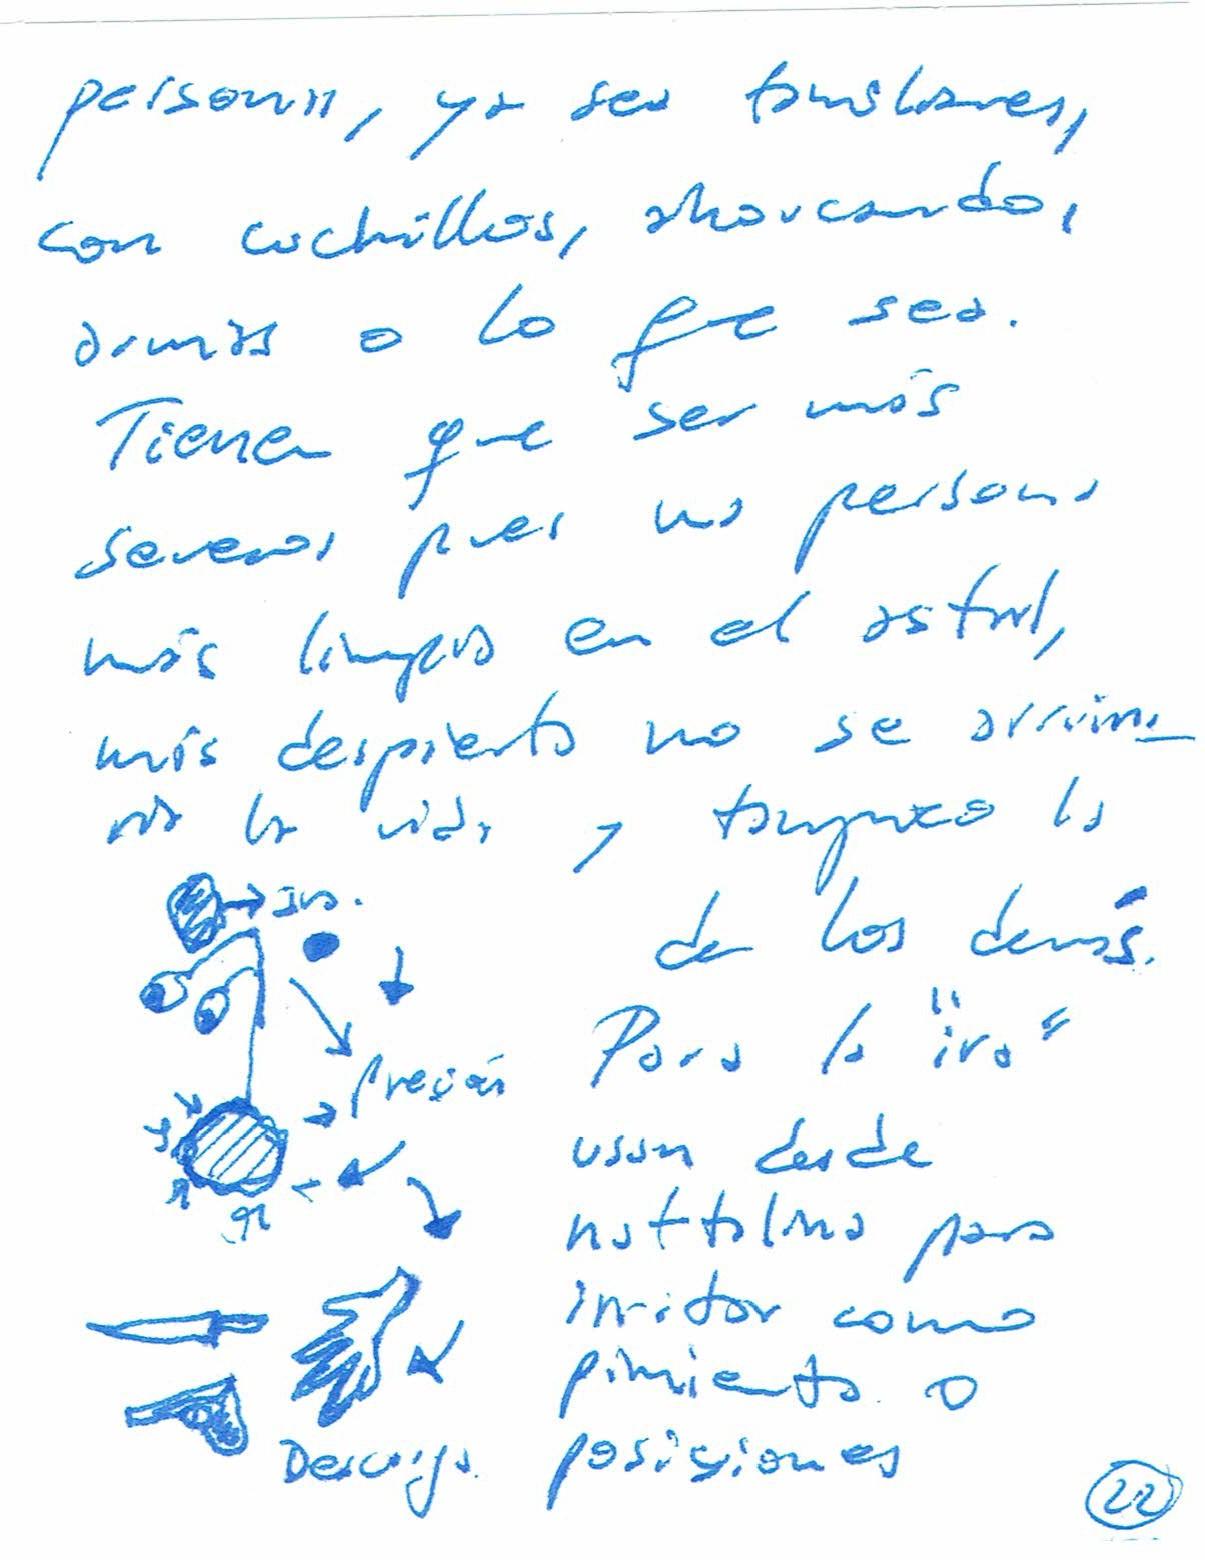 personas, ya sea familiares,
con cuchillos, ahorcando,
armas o lo que sea.
Tienen que ser más
severos pues una persona
más limpia en el astral,
más despierta no se arruina
la vida y tampoco la
de los demás.
Ira.
Para la "ira"
presión
usan desde
naftalina para
irritar como
pimienta o
Descarga posiciones
22